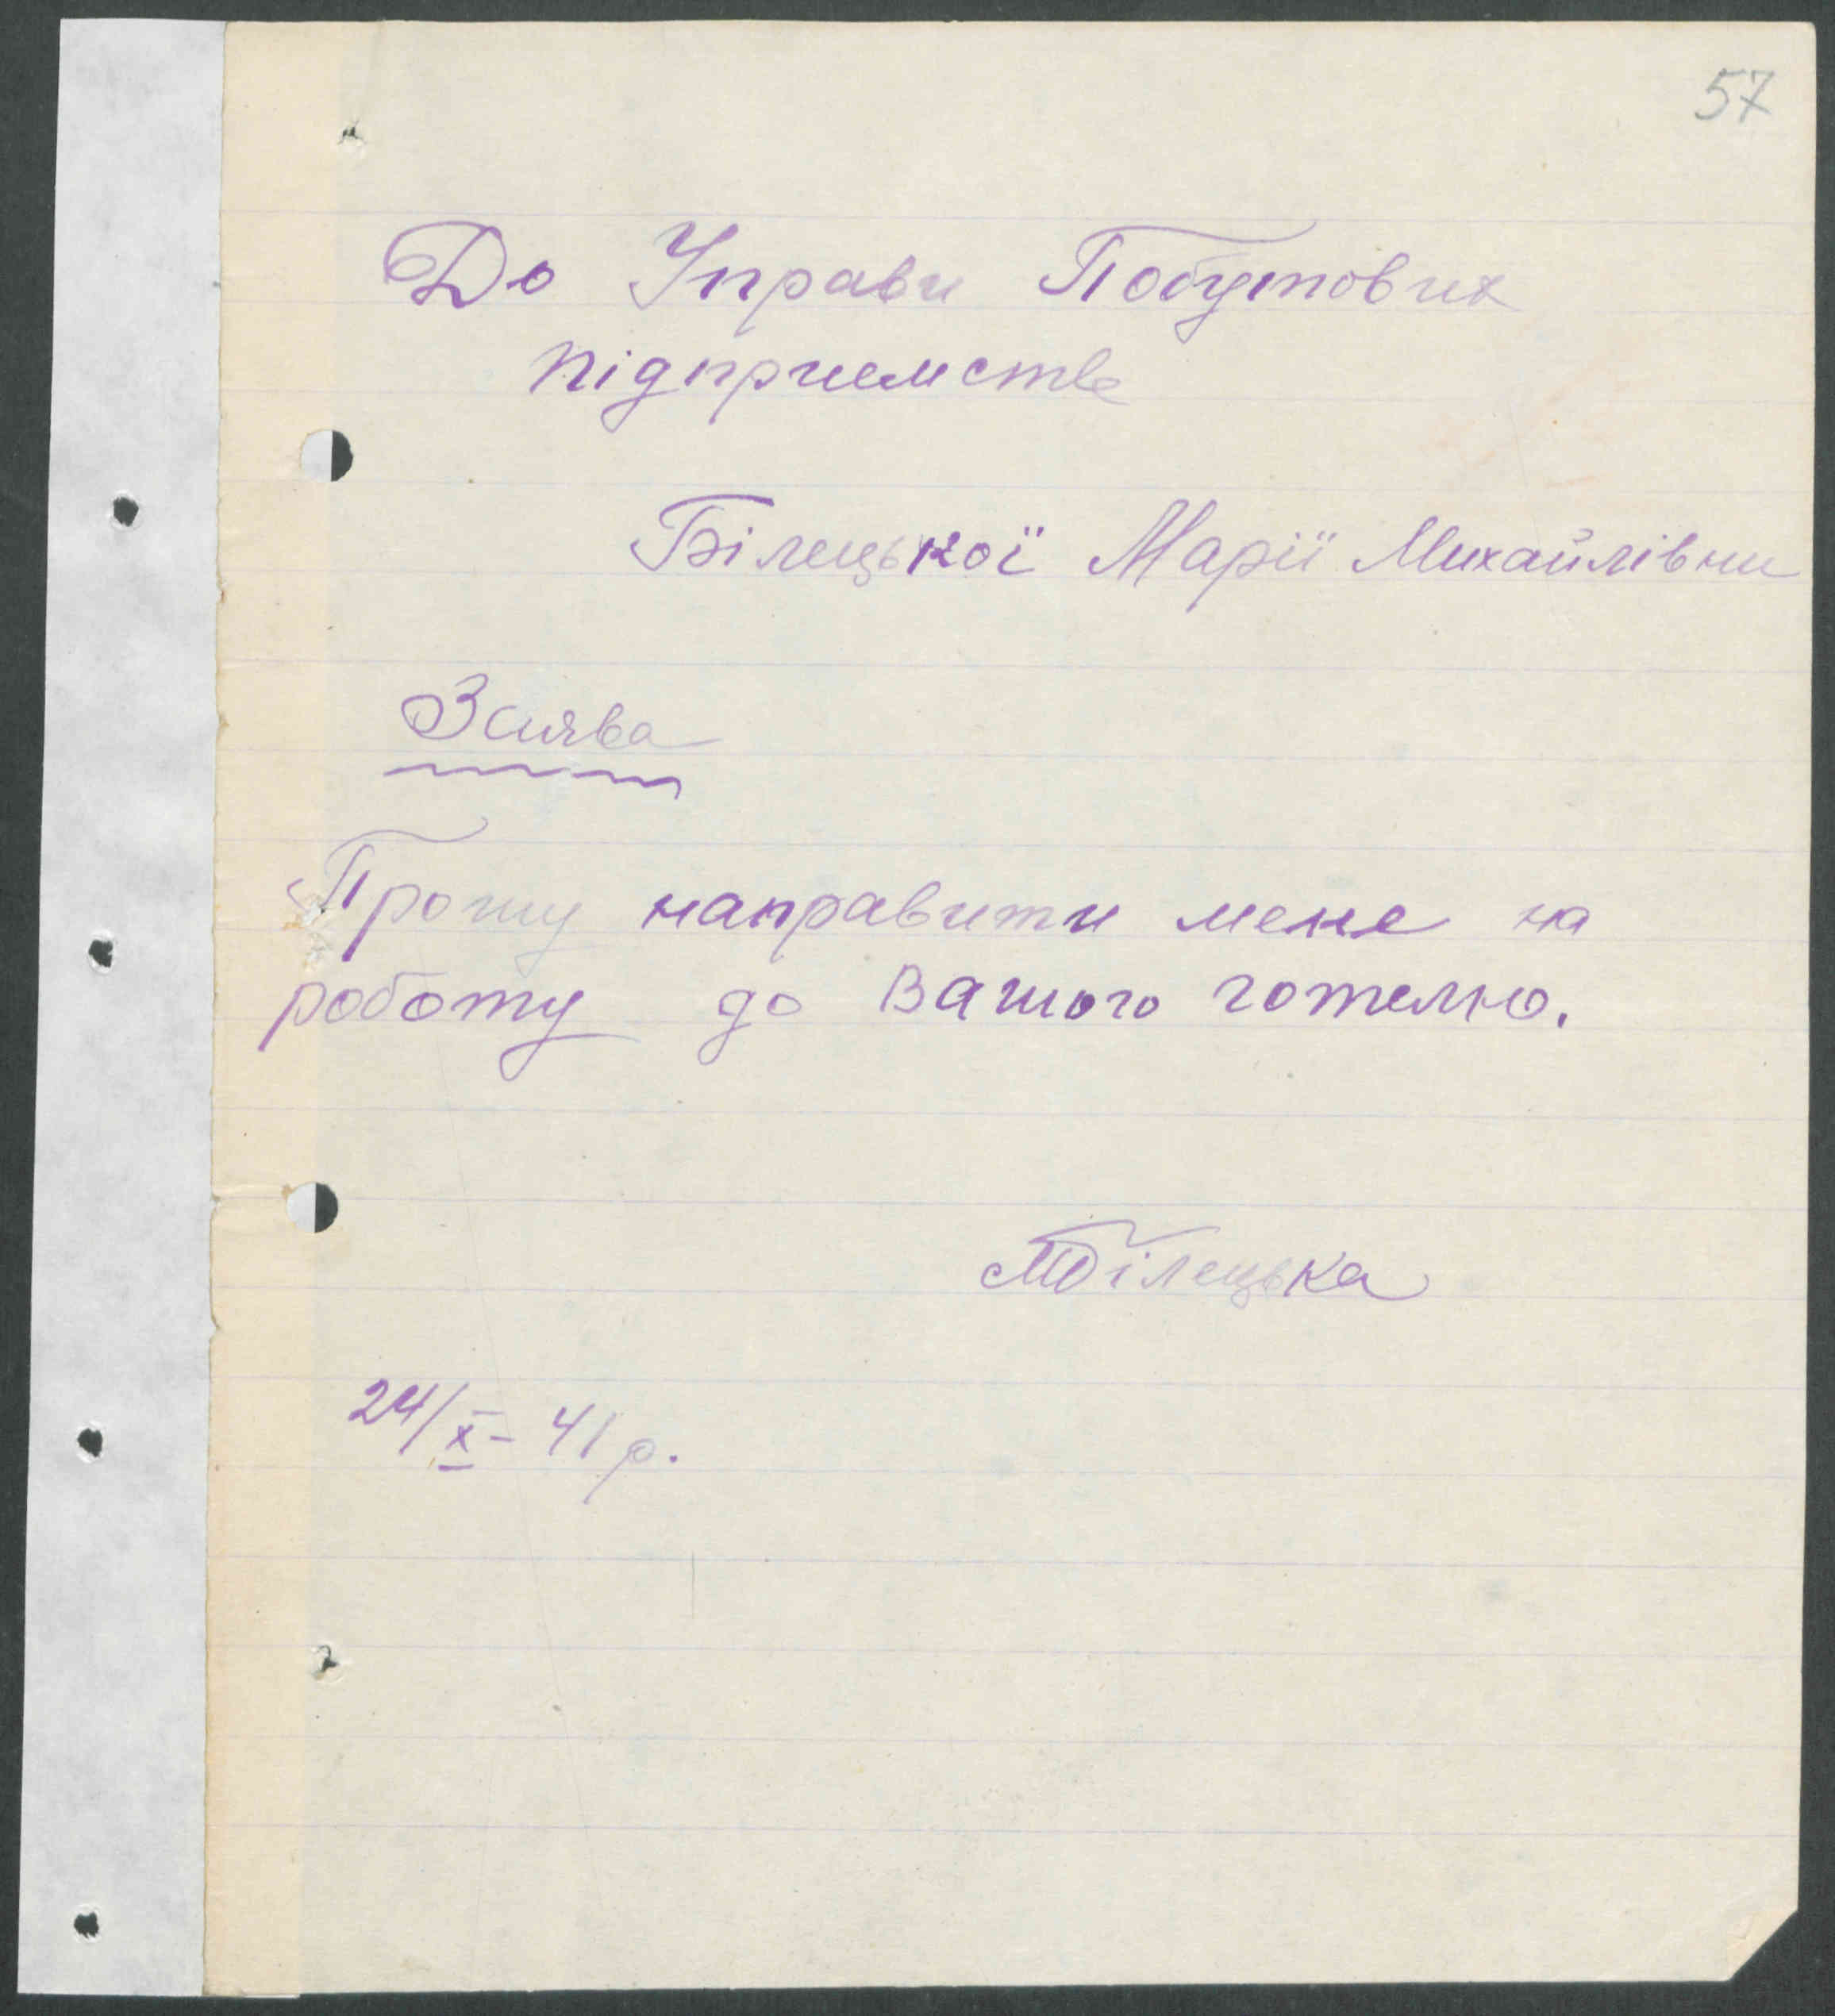 57
До Управи Побутових
підприемств
Білецької Марії Михайлівни
Заява
Прошу направити мене на
роботу до Вашого готелю.
МБілецька
24/X - 41 р.